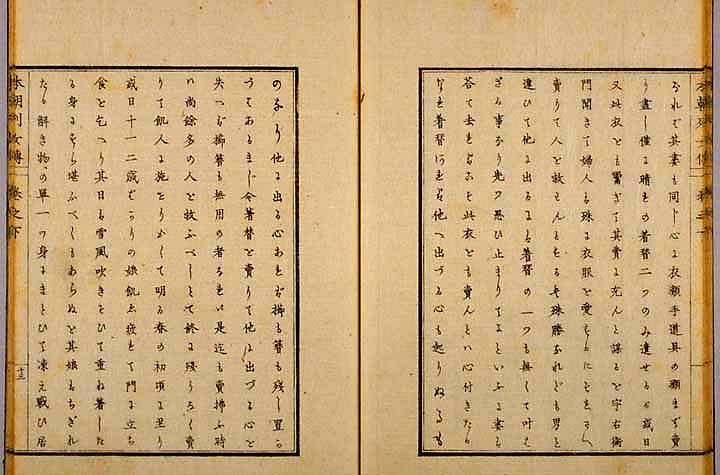 なれど其妻も同じ心に衣類手道具の類まで賣
り盡し僅に晴きの着替二つのみ遺せるを或日
又此衣をも鬻ぎて其費に充んと謀るを宇右衛
門聞きて婦人も殊に衣服を愛する
賣りて人を救はんとする其殊勝なれども男と
違ひて他に出るには着替の一つも無くて叶は
ざる事なり先づ思ひ止まりてよといふに妻も
答て此衣をも賣んといふ心付きたら
着替を他へ出づる心も起りぬるも
のなり他に出る心あらば櫛も簪も残し置
てあるまじ今着替を賣りて他に出づる心を
失つれば櫛簪も無用の者是迄も賣拂ふ時
ハ尚餘多の人を救ふべしとて終に殘りなく賣
りて飢人に施せりかくて明る春の初頃に至り
或日十一二歳ばかりの娘飢ゑ疲れて門に立ち
食を乞へり其日も雪風吹きそひて重ね着した
る身にすら堪ふべくもあらぬを其娘はちぎれ
たる解き物の單一つ身にまとひて凍え戰ひ居
本朝列女傳 巻之下
十三